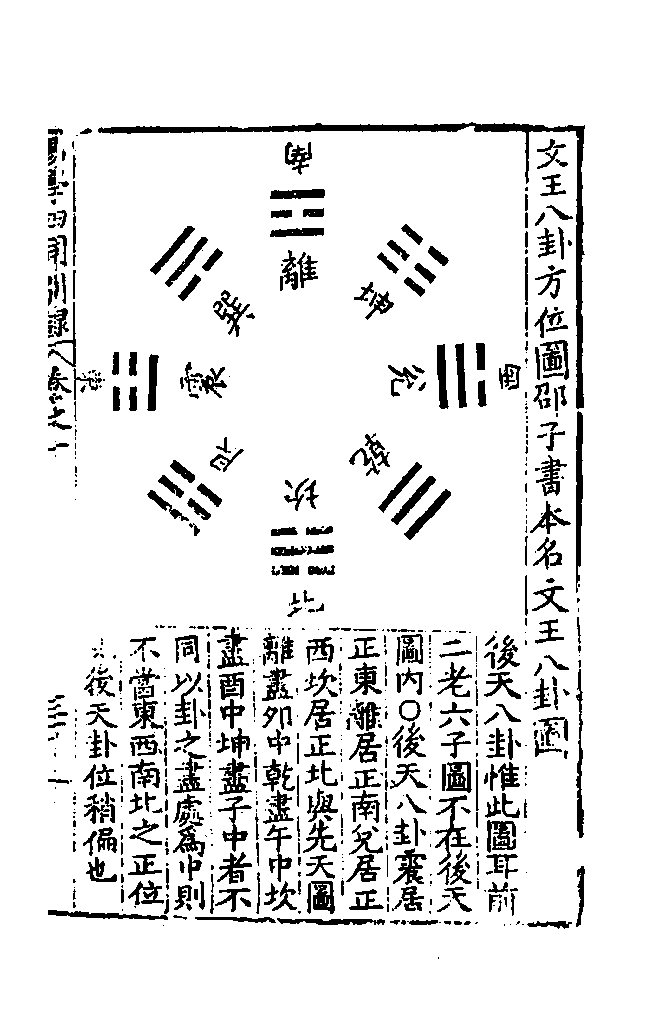 文王八卦方位圖邵子書本名文王八卦圖
南
離
坤
巽
酉
兌
震
東
乾
艮
坎
北
後天八卦惟此圖耳前
二老六子圖不在後天
圖內○後天八卦震居
正東離居正南兌居正
西坎居正北與先天圖
離盡卯中乾盡午中坎
盡酉中坤盡子中者不
同以卦之盡處為中則
不當東西南北之正位
後天卦位稍偏也
卷之一